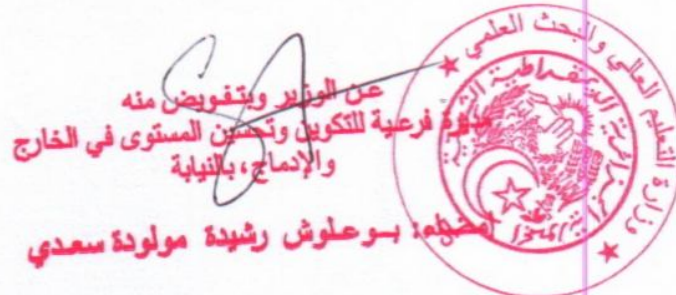 عن الوزير وبتفويض منه
مديرة فرعية للتكوين وتحسين المستوى في الخارج
والإدماج، بالنيابة
إمضاء: بوعلوش رشيدة مولودة سعدي
وزارة التعليم العالي والبحث العلمي
الجمهورية الجزائرية الديمقراطية الشعبية